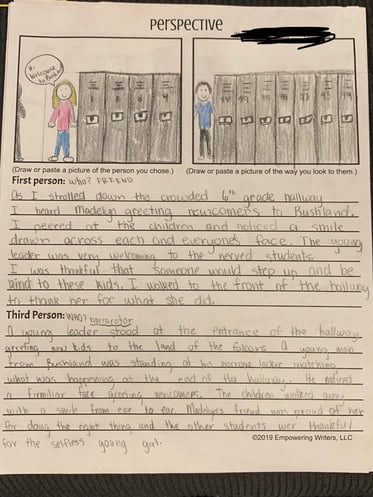 PERSPECTIVE
Hi, Welcome to Bushland
(Draw or paste a picture of the person you chose.)
(Draw or paste a picture of the way you look to them.)
First person: who? FRIEND
As I strolled down the crowded 6th grade hallway
I heard Madelyn greeting newcomers to Bushland.
I peered at the children and noticed a smile
drawn across each and everyone's face. The young
leader was very welcoming to the nerved students.
I was thankful that someone would step up and be
kind to these kids. I walked to the front of the hallway
to thank her for what she did.
Third Person: WHO? narrator
A young leader stood at the entrance of the hallway
greeting new kids to the land of the falcons. A young man
from Bushland was standing at his narrow locker watching
what was happening at the end of the hallway. He noticed
a firmiliar face greeting welcomers. The children walked away
with a smile from ear to ear. Madelyns friend was proud of her
for doing the right thing and the other students wer thankful
for the selfless young girl.
©2019 Empowering Writers, LLC